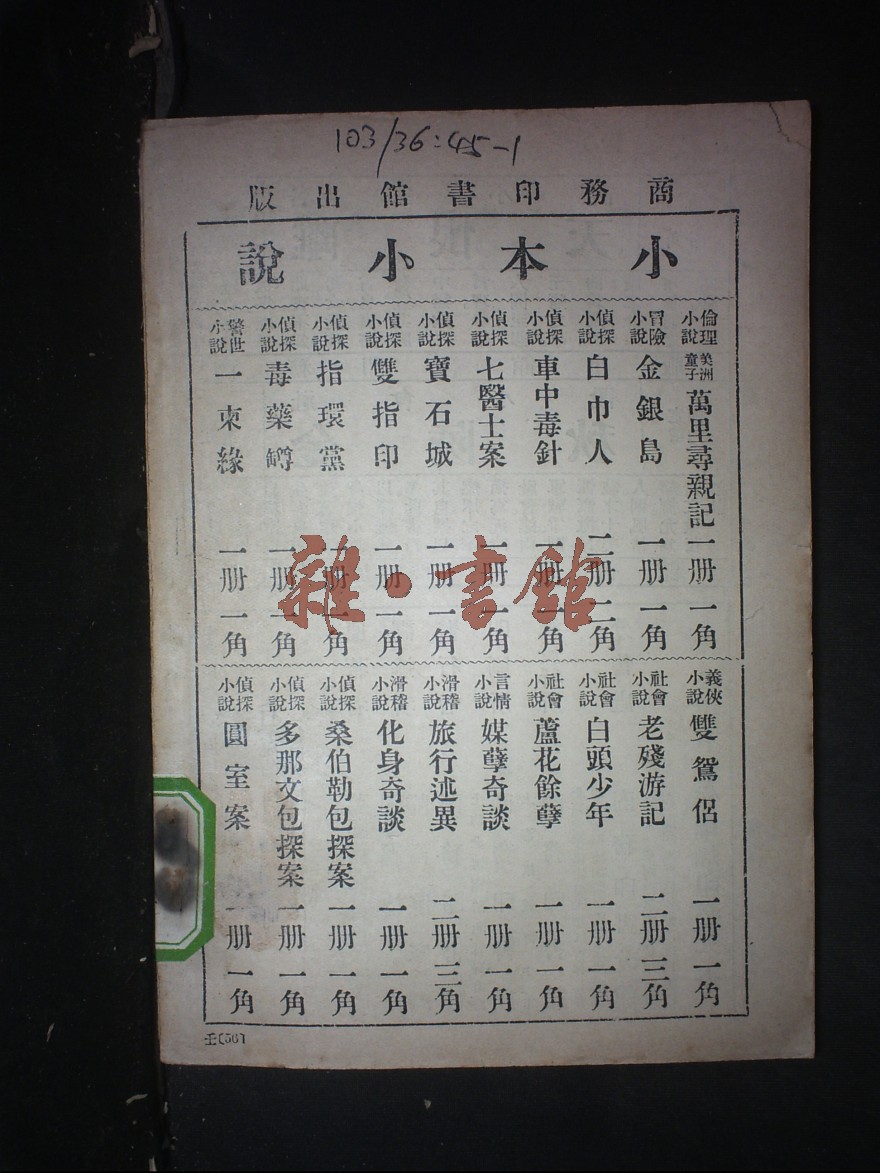 103/36:45-1
商務印書館出版
小本小說
倫理小說 美洲童子 萬里尋親記 一册 一角
冒險小說 金銀島 一册 一角
偵探小說 白巾人 二册 二角
偵探小說 車中毒針 一册 一角
偵探小說 七醫士案 一册 一角
偵探小說 寶石城 一册 一角
偵探小說 雙指印 一册 一角
偵探小說 指環黨 一册 一角
偵探小說 毒藥罇 一册 一角
警世小說 一柬緣 一册 一角
義俠小說 雙鴛侶 一册 一角
社會小說 老殘游記 二册 三角
社會小說 白頭少年 一册 一角
社會小說 蘆花餘孽 一册 一角
言情小說 媒孽奇談 一册 一角
滑稽小說 旅行述異 二册 三角
滑稽小說 化身奇談 一册 一角
偵探小說 桑伯勒包探案 一册 一角
偵探小說 多那文包探案 一册 一角
偵探小說 圓室案 一册 一角
雜·書館